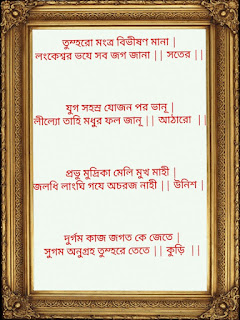 তুম্হরো মংত্র বিভীষণ মানা |
লংকেশ্বর ভযে সব জগ জানা || সতের ||
যুগ সহস্র যোজন পর ভানূ |
লীল্যো তাহি মধুর ফল জানূ || আঠারো ||
প্রভু মুদ্রিকা মেলি মুখ মাহী |
জলধি লাংঘি গযে অচরজ নাহী || উনিশ |
দুর্গম কাজ জগত কে জেতে |
সুগম অনুগ্রহ তুম্হরে তেতে || কুড়ি ||